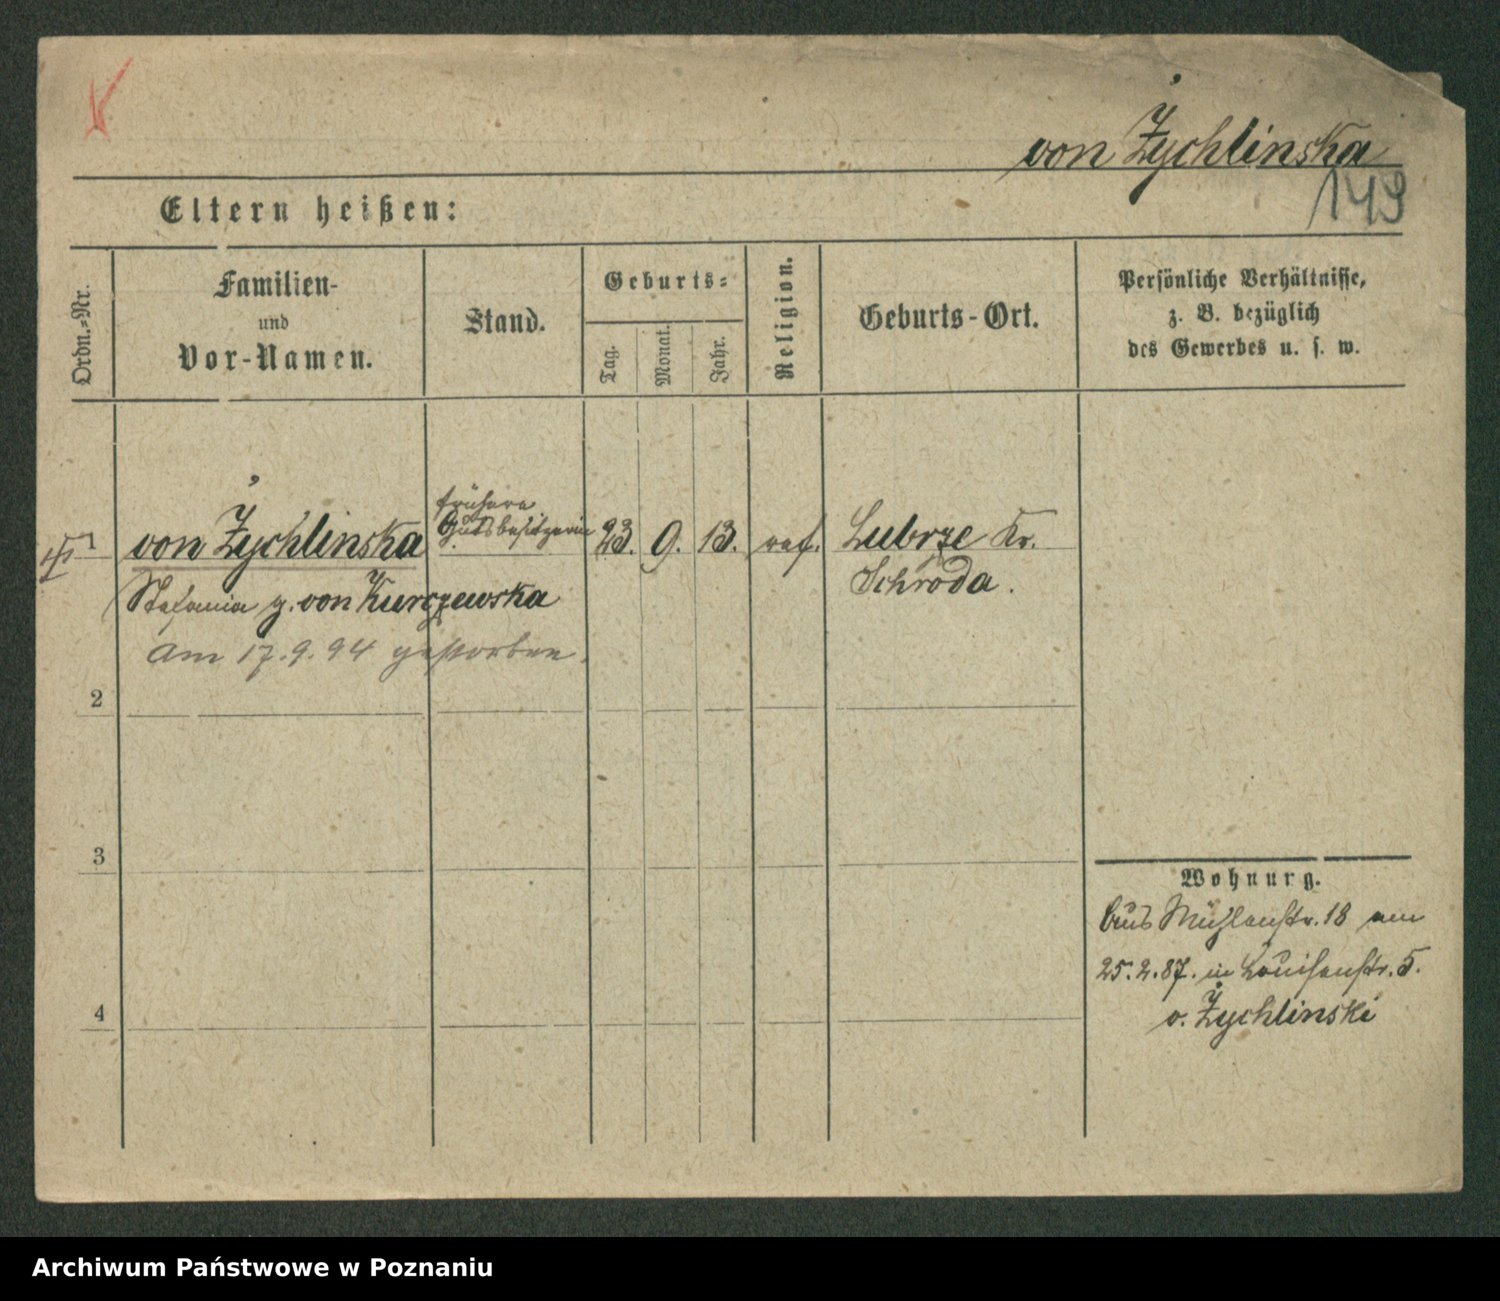 von Żychlinska
149
Eltern heißen:
Ordn.=Nr.
Familien-
und
Vor-Namen.
Stand.
Geburts=
Tag.
Monat.
Jahr.
Religion.
Geburts-Ort.
Persönliche Verhältnisse,
z. B. bezüglich
des Gewerbes u. s. w.
1
von Żychlinska
frühere
Gutsbesitzerin
23. 9. 13. ref. Lubrze Kr.
Schroda.
Stefania g. von Kurczewska
Am 17.9.94 gestorben.
2
3
4
Wohnung.
Aus Mühlenstr. 18 am
25.2.87. in Louisenstr. 5.
v. Żychlinski
Archiwum Państwowe w Poznaniu